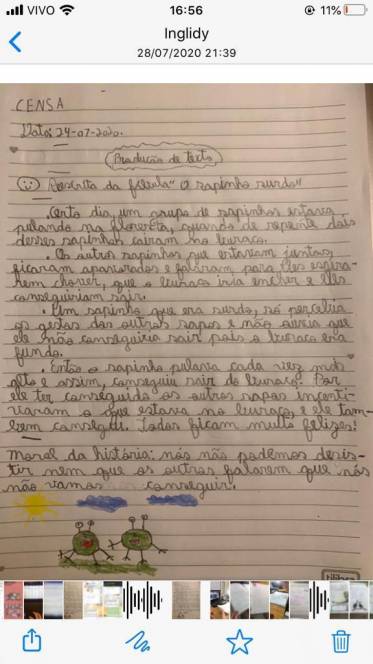 VIVO 16:56 11%
Inglidy
28/07/2020 21:39
CENSA
Data: 24-07-2020.
Produção de texto
Reescrita da fábula "O sapinho surdo"
. Certo dia, um grupo de sapinhos estava
pulando na floresta, quando de repente dois
desses sapinhos caíram no buraco.
. Os outros sapinhos que estavam juntos,
ficaram apavorados e falaram para eles espera-
rem chover, que o buraco iria encher e eles
conseguiriam sair.
. Um sapinho que era surdo, só percebia
os gestos dos outros sapos e não ouvia que
ele não conseguiria sair pois o buraco era
fundo.
. Então o sapinho pulava cada vez mais
alto e assim, conseguiu sair do buraco. Por
ele ter conseguido os outros sapos incenti-
varam o que estava no buraco e ele tam-
bém conseguiu. Todos ficam muito felizes!
Moral da história: nós não podemos desis-
tir nem que os outros falarem que nós
não vamos conseguir.
tilibra